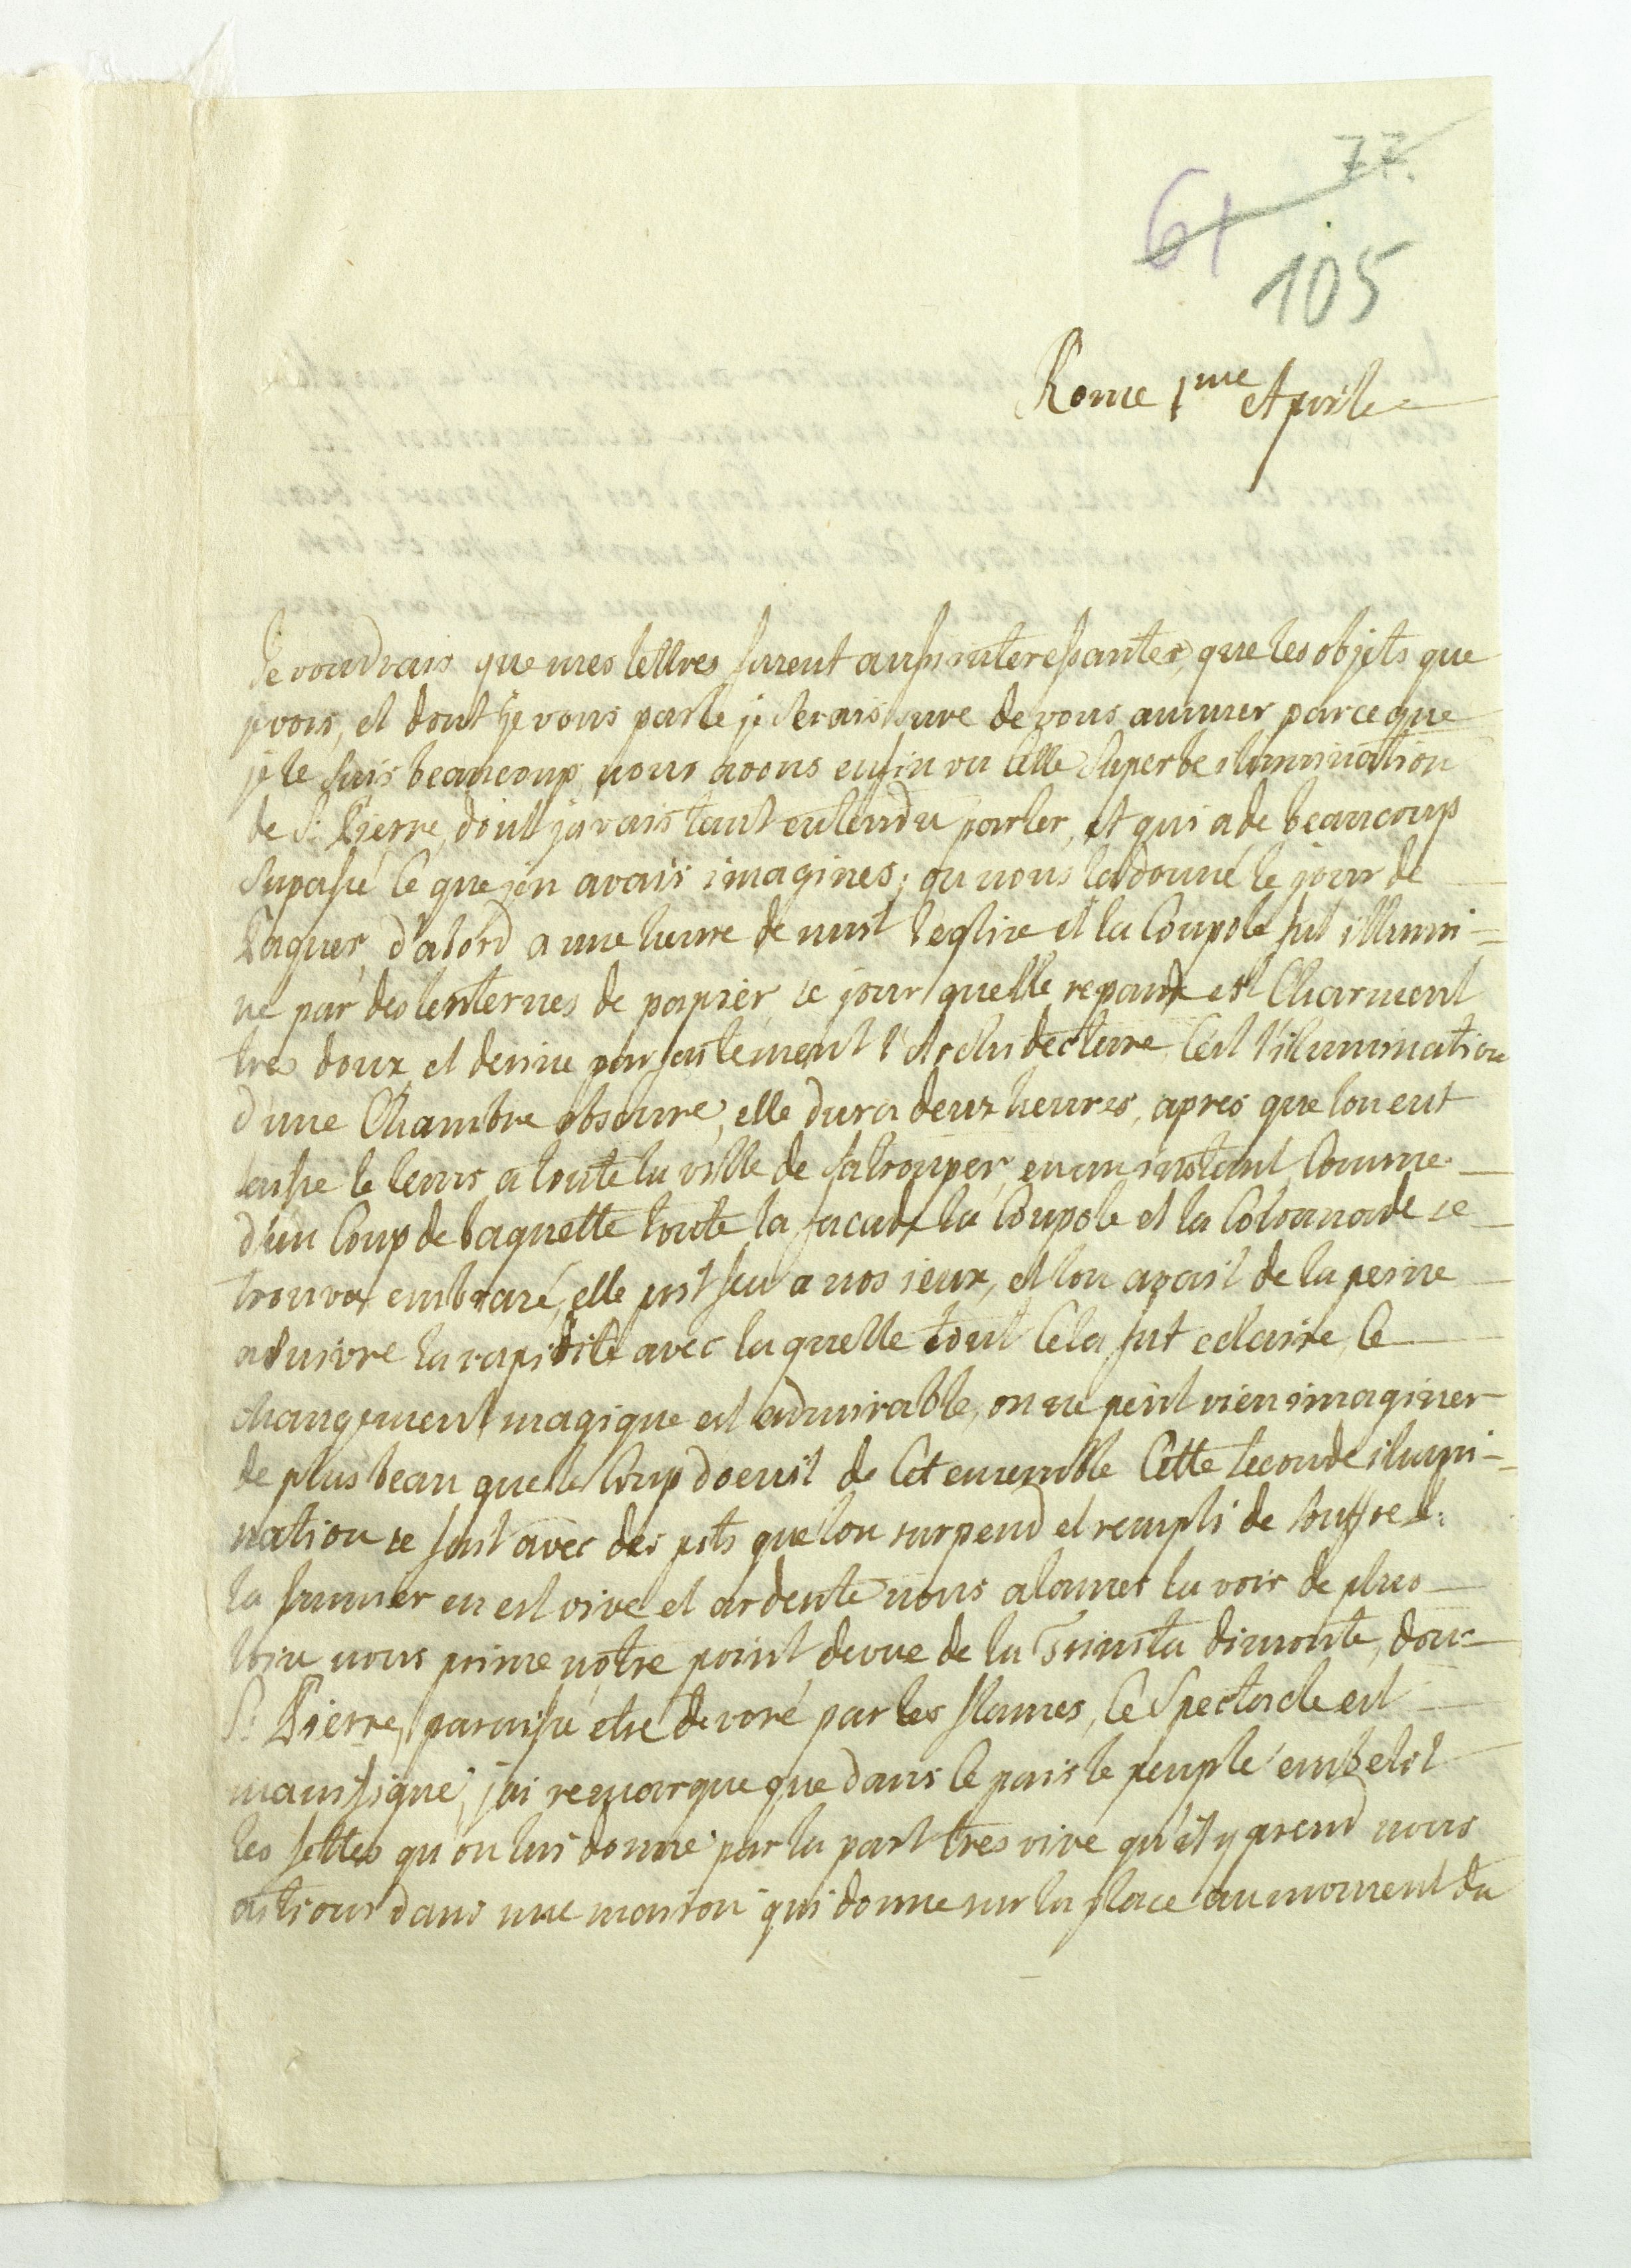 77.
61
105
Rome 1me Aprile
Je voudrais que mes lettres furent aussi interessantes, que les objets que
je vois, et dont je vous parle je serais sure de vous amuser parceque
je le suis beaucoup, nous avons enfin vu cette superbe ilumination
de St Pierre, dont javais tant entendu parler, et qui a de beaucoup
supassé ce que jen avais imagines; on nous la donné le jour de
Paques, d'abord a une heure de nuit l'eglise et la Coupole fut illumi=
né par des lenternes de papier, le jour quelle repand est Charment
tres doux, et desine parfaitement l'Archidecture, Cest l'ilumination
d'une Chambre obscure, elle dura deux heures, apres que lon eut
laisse le tems a toute la ville de satrouper, en un instant, Comme
d'un Coup de baguette toute la facade la Coupole et la Colonnade se
trouva embrasé, elle prit feu a nos ieux, et lon avait de la peine
a suivre la rapidité avec laquelle tout Cela fut eclaire, Ce
changement magique est admirable, on ne peut rien imaginer
de plus beau que le Coup doeuil de Cet ensemble Cette seconde ilumi-
nation se fait avec des pots que lon suspend et rempli de souffre
la fumier en est vive et ardente nous alames la voir de plus
loin nous prime notre point de vue de la Trinita dimonte, dou
St Pierre, paraissé etre devoré par les flames, Ce Spectacle est
manifique, jai remarque que dans Ce pais le peuple embelit
les fettes qu'on lui donne par la part tres vive qu'il y prend nous
etions dans une maison qui donne sur la place au moment du